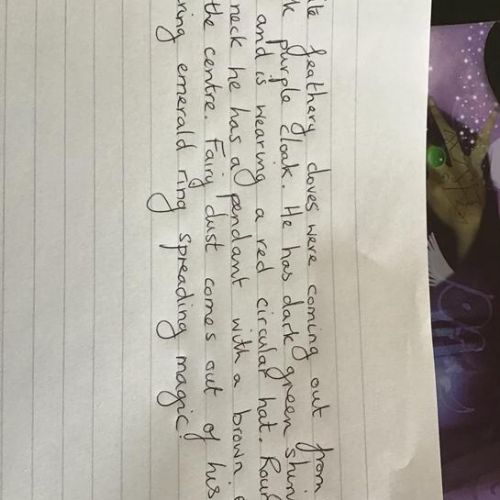 ite feathery doves were coming out from
k purple cloak. He has dark green shin
and is wearing a red circular hat. Roun
neck he has a pendant with a brown
the centre. Fairy dust comes out of his
ring emerald ring spreading magic!